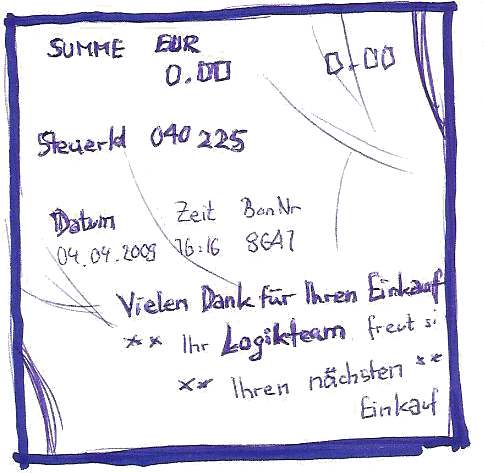 SUMME EUR
0.00 0.00
SteuerId 040 225
Datum Zeit BonNr
04.04.2009 16:16 8647
Vielen Dank für Ihren Einkauf
** Ihr Logikteam freut si
** Ihren nächsten **
Einkauf